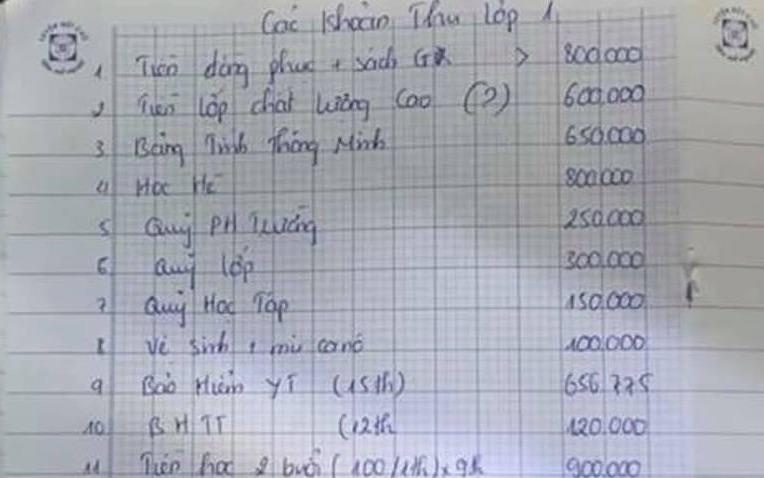 Các Khoản Thu lớp 1
1 Tiền đồng phục + sách GK > 800.000
2 Tiền lớp chất lượng cao (?) 600.000
3 Bảng Tính Thông Minh 650.000
4 Học Hè 800.000
5 Quỹ PH Trường 250.000
6 Quỹ lớp 300.000
7 Quỹ Học Tập 150.000
8 Vệ sinh + mũ ca nô 100.000
9 Bảo Hiểm YT (15th) 656.775
10 BHTT (12th 120.000
11 Tiền học 2 buổi (100/1th) x 9th 900.000